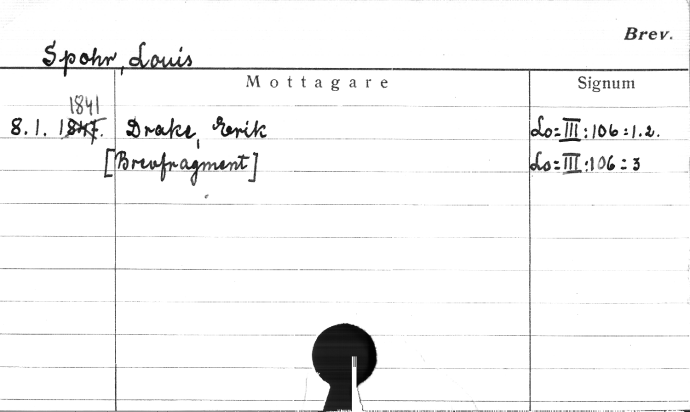 Brev.
Spohr, Louis
Mottagare Signum
1841
8.1. 1847. Drake, Erik Lo=III:106:1.2.
[Brevfragment] Lo=III:106:3